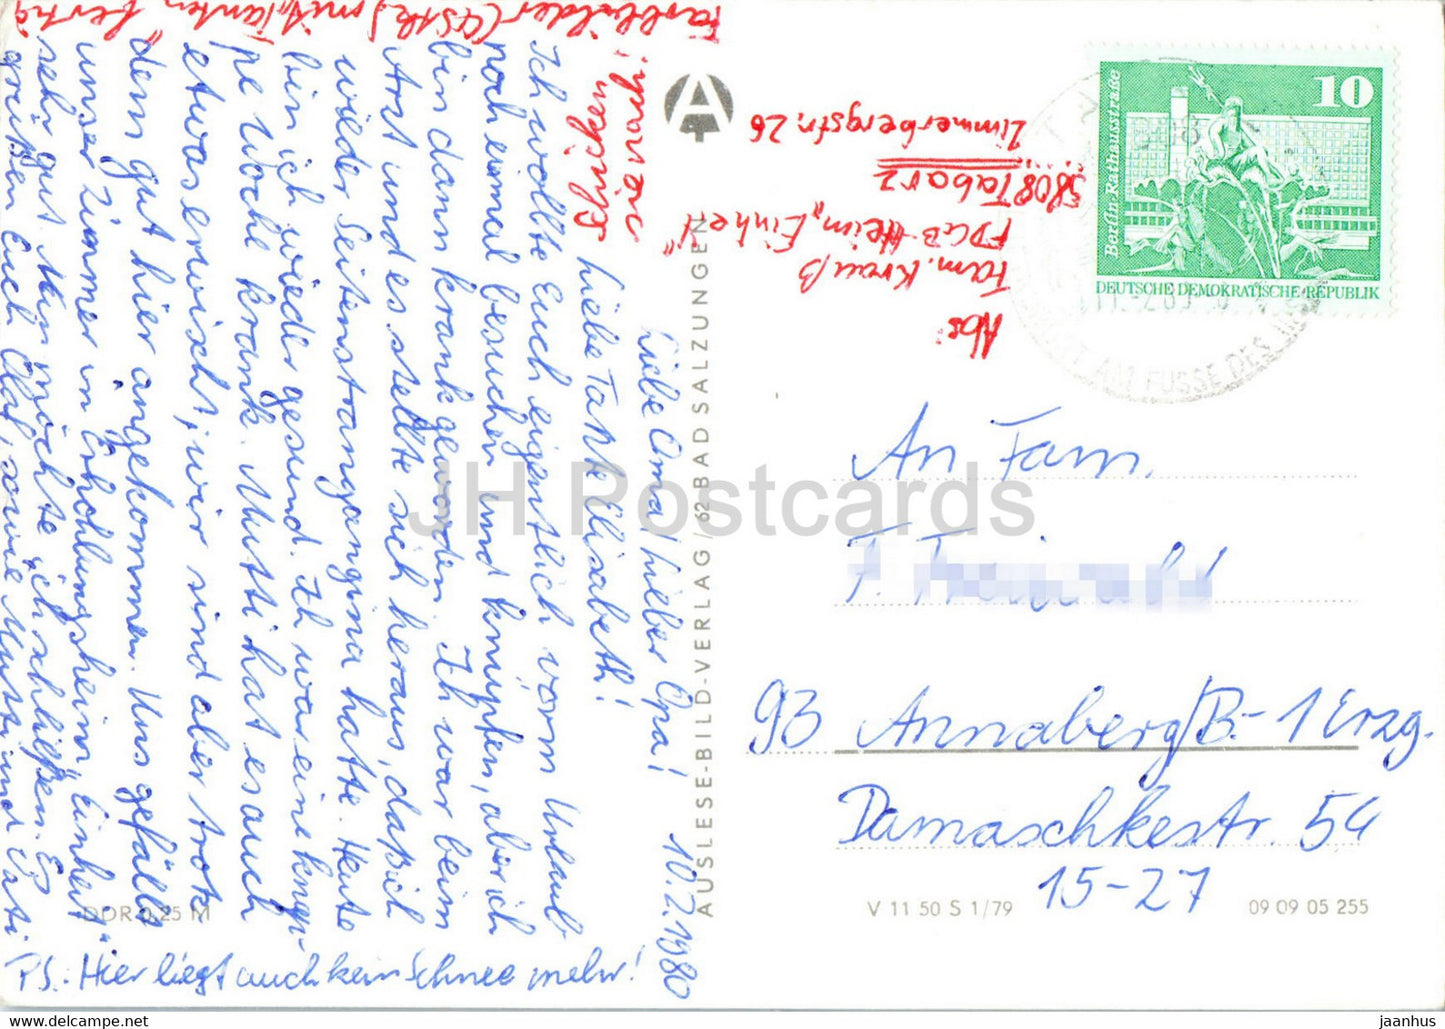 10.2.1980
Liebe Oma! Lieber Opa!
Liebe Tante Elisabeth!
Ich wollte Euch eigentlich vorm Urlaub
noch einmal besuchen und knupfen, aber ich
bin dann krank geworden. Ich war beim
Art und es stellte sich heraus, daß ich
wieder Seitenstrangangina hatte. Heute
bin ich wieder gesund. Ih war eine knap-
pe Woche krank. Mutti hat es auch
etwas erwischt, wir sind aber trotz
dem gut hier angekommen. Uns gefällt
unser Zimmer im Erholungsheim „Einheit“
sehr gut. Nun möchte ich schließen. Es
grüßen Euch Olaf, sowie Mutti und Vati
P.S.: Hier liegt auch kein Schnee mehr!
Farbbilder (4Stk) mit
fertig
Abs:
Fam. Krauß
FDGB-Heim „Einheit“
5808 Tabarz
Zimmerbergstr. 26
AUSLESE-BILD-VERLAG / 62 BAD SALZUNGEN
10
Berlin, Rathausstraße
DEUTSCHE DEMOKRATISCHE REPUBLIK
AM FUSSE DES
An Fam.
F.
93 Annaberg/B.-1 Erzg.
Damaschkestr. 54
15-27
DDR 0,25 M
V 11 50 S 1/79
09 09 05 255
JH Postcards
jaanhus — https://jhpostcards.com